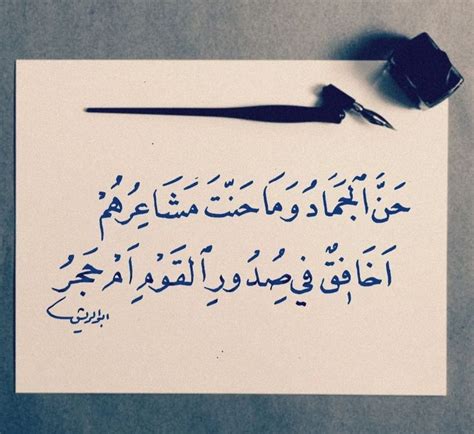 حَنَّ ٱلجَمَادُ وَمَا حَنَّتَ مَشَاعِرُهُمْ
اَخَافِقٌ فِي صُِدُورِ ٱلقَوْمِ اَمْ حَجَرُ
ابوالريش